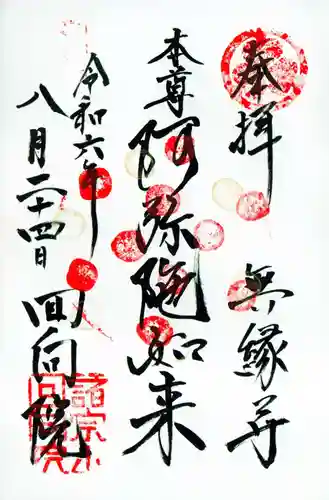 奉拝
無縁寺
本尊
阿弥陀如来
令和六年
八月二十四日
回向院